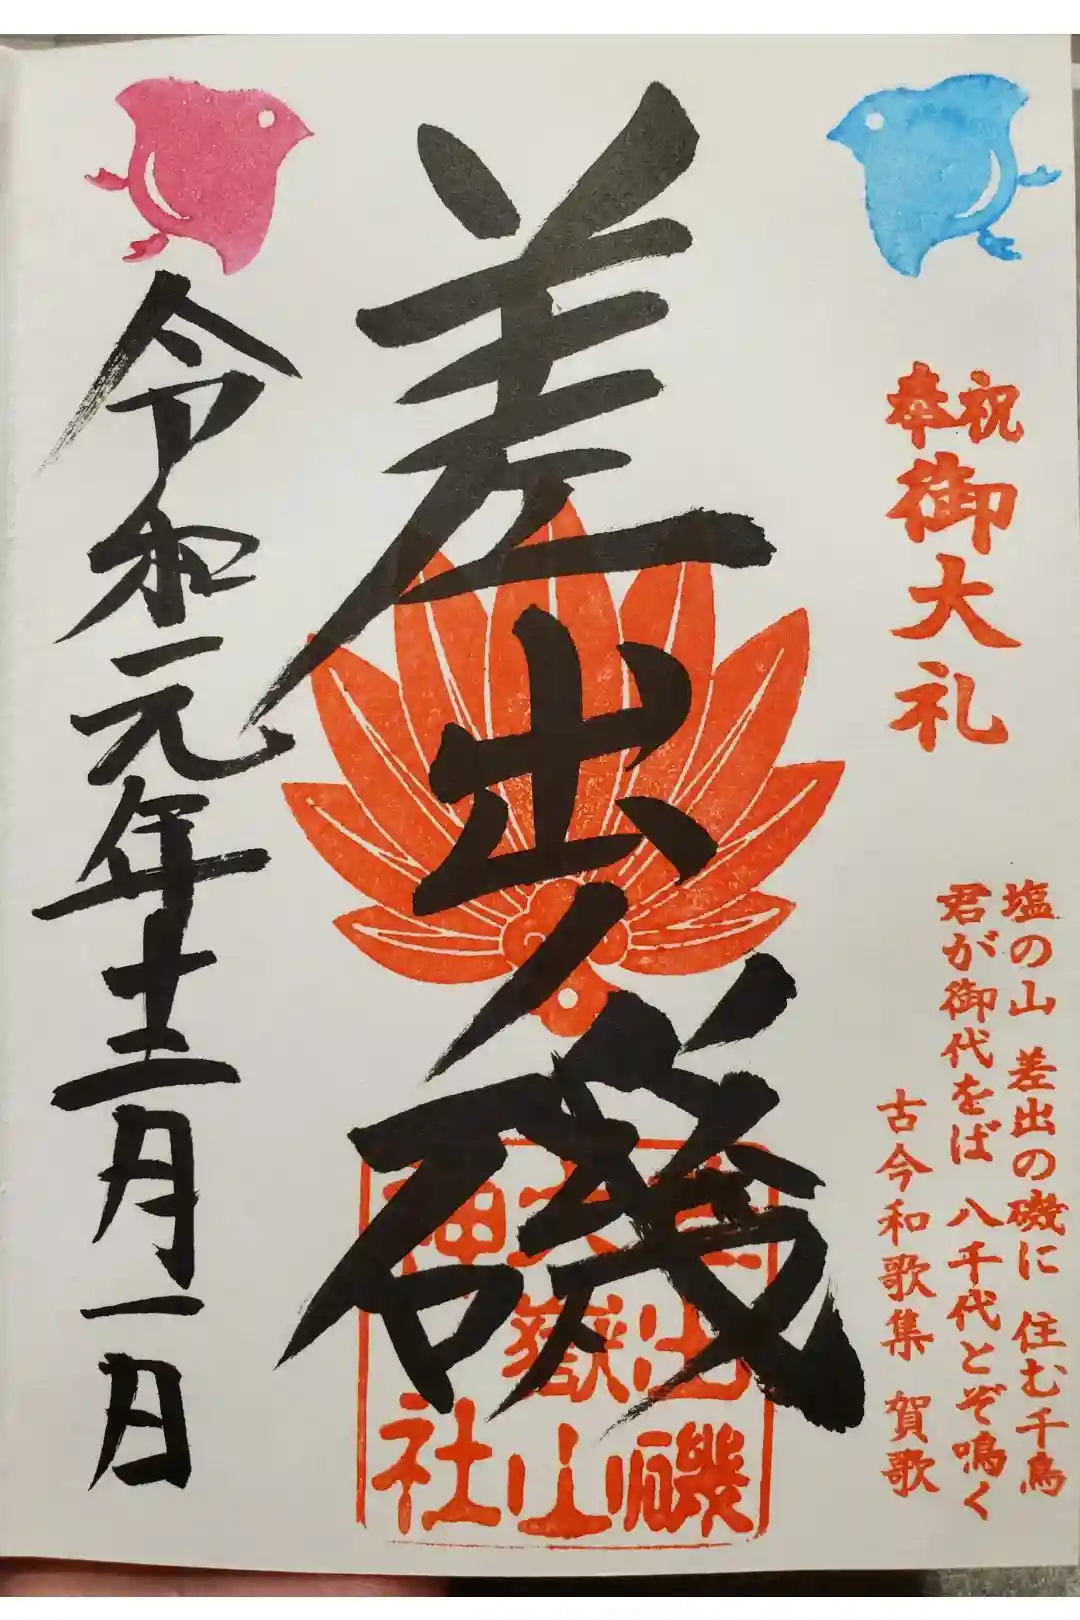 奉祝
御大礼
塩の山 差出の磯に 住む千鳥
君が御代をば 八千代とぞ鳴く
古今和歌集 賀歌
差出ノ磯
差出磯
大嶽山
神社
令和元年十二月一日